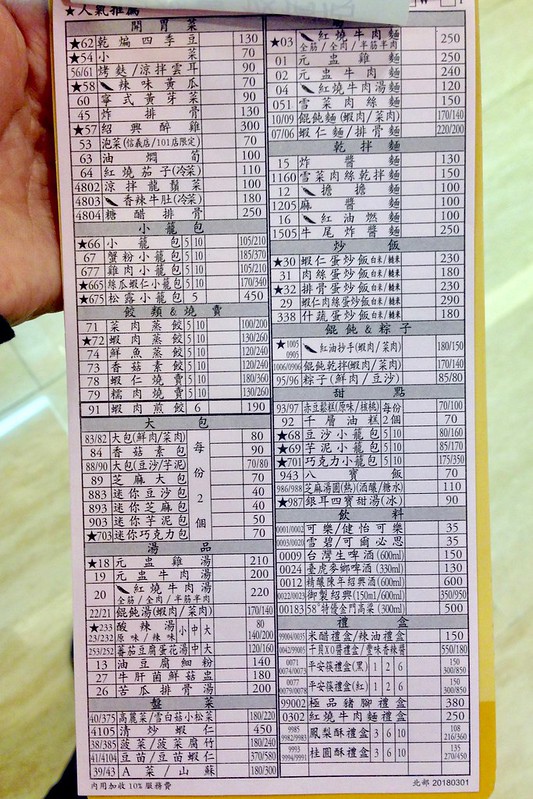 ★人氣推薦
開胃菜
★62 乾煸四季豆 130
★54 小菜 70
56/61 烤麩/涼拌雲耳 90
★58 辣味黃瓜 70
60 寧式黃芽菜 90
45 炸排骨 130
★57 紹興醉雞 300
53 泡菜(信義店/101店限定) 70
63 油燜筍 100
64 紅燒茄子(冷菜) 110
4802 涼拌龍鬚菜 100
4803 香辣牛肚(冷菜) 180
4804 糖醋排骨 250
小籠包
★66 小籠包 5 10 105/210
67 蟹粉小籠包 5 10 185/370
677 雞肉小籠包 5 10 105/210
★665 絲瓜蝦仁小籠包 5 10 170/340
★675 松露小籠包 5 450
餃類&燒賣
71 菜肉蒸餃 5 10 100/200
★72 蝦肉蒸餃 5 10 130/260
74 鮮魚蒸餃 5 10 120/240
73 香菇素餃 5 10 120/240
78 蝦仁燒賣 5 10 180/360
79 糯肉燒賣 5 10 130/260
91 蝦肉煎餃 6 190
大包
83/82 大包(鮮肉/菜肉) 80
84 香菇素包 90
88/90 大包(豆沙/芋泥) 70/80
89 芝麻大包 70
883 迷你豆沙包 40
893 迷你芝麻包 40
903 迷你芋泥包 50
★703 迷你巧克力包 70
每份2個
湯品
★18 元盅雞湯 210
19 元盅牛肉湯 200
20 紅燒牛肉湯 220
全筋/全肉/半筋半肉
22/21 餛飩湯(蝦肉/菜肉) 170/140
★233 酸辣湯 小 中 大 80
23/232 原味/辣味 140/200
253/252 蕃茄豆腐蛋花湯 中 大 120/160
13 油豆腐細粉 140
27 牛肝菌鮮菇盅 180
26 苦瓜排骨湯 200
盤菜
40/375 高麗菜/雪白菇小松菜 180/220
4105 清炒蝦仁 450
38/385 菠菜/菠菜腐竹 180/240
41/4104 豆苗/豆苗蝦仁 370/580
39/43 A菜/山蘇 180/300
內用加收10%服務費
麵
★03 紅燒牛肉麵 250
全筋/全肉/半筋半肉
01 元盅雞麵 250
02 元盅牛肉麵 240
04 紅燒牛肉湯麵 120
051 雪菜肉絲麵 160
10/09 餛飩麵(蝦肉/菜肉) 170/140
07/06 蝦仁麵/排骨麵 220/200
乾拌麵
15 炸醬麵 130
1160 雪菜肉絲乾拌麵 160
12 擔擔麵 100
1205 麻醬麵 100
16 紅油燃麵 100
1505 牛尾炸醬麵 250
炒飯
★30 蝦仁蛋炒飯 白米/糙米 230
31 肉絲蛋炒飯 白米/糙米 180
★32 排骨蛋炒飯 白米/糙米 230
29 蝦仁肉絲蛋炒飯 白米/糙米 290
338 什蔬蛋炒飯 白米/糙米 180
餛飩&粽子
★1005 0905 紅油抄手(蝦肉/菜肉) 180/150
1006/0906 餛飩乾拌(蝦肉/菜肉) 170/140
95/96 粽子(鮮肉/豆沙) 85/80
甜點
93/97 赤豆鬆糕(原味/核桃) 每份 70/100
92 千層油糕 2個 70
★68 豆沙小籠包 5 10 80/160
★69 芋泥小籠包 5 10 85/170
★701 巧克力小籠包 5 10 175/350
943 八寶飯 70
986/988 芝麻湯圓(熱)(酒釀/糖水) 110
★987 銀耳四寶甜湯(冰) 90
飲料
0001/0002 可樂/健怡可樂 35
0003/0020 雪碧/可爾必思 35
0009 台灣生啤酒(600ml) 150
0024 臺虎麥鄉啤酒(330ml) 130
0012 精釀陳年紹興酒(600ml) 600
00122/0012 御製紹興(150ml/600ml) 350/950
00183 58°特優金門高粱(300ml) 500
禮盒
99004/0035 米醋禮盒/辣油禮盒 150
0042/99005 干貝XO醬禮盒/豐味香辣醬 550/180
0071 0074/0073 平安筷禮盒(黑) 1 2 6 150 300/850
0077 0079/0078 平安筷禮盒(紅) 1 2 6 150 300/850
99002 極品豬腳禮盒 380
0302 紅燒牛肉麵禮盒 250
9985 9982/9983 鳳梨酥禮盒 3 6 10 108 216/360
9993 9994/9991 桂圓酥禮盒 3 6 10 135 270/450
北部 20180301